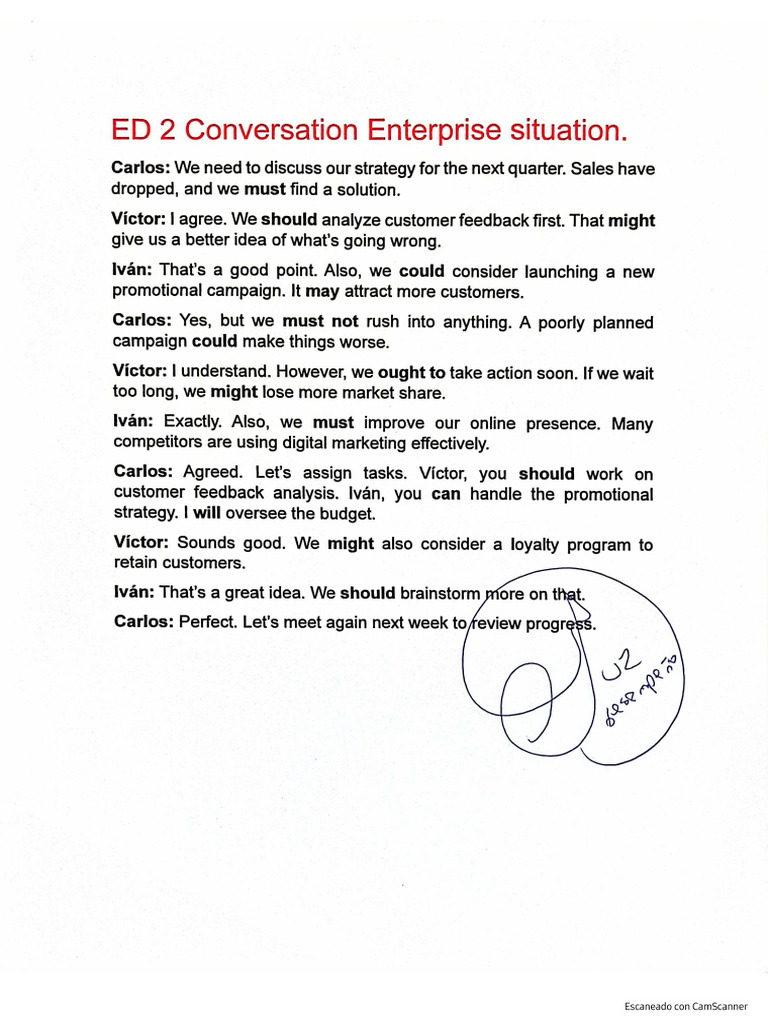 ED 2 Conversation Enterprise situation.
Carlos: We need to discuss our strategy for the next quarter. Sales have
dropped, and we must find a solution.
Víctor: I agree. We should analyze customer feedback first. That might
give us a better idea of what's going wrong.
Iván: That's a good point. Also, we could consider launching a new
promotional campaign. It may attract more customers.
Carlos: Yes, but we must not rush into anything. A poorly planned
campaign could make things worse.
Víctor: I understand. However, we ought to take action soon. If we wait
too long, we might lose more market share.
Iván: Exactly. Also, we must improve our online presence. Many
competitors are using digital marketing effectively.
Carlos: Agreed. Let's assign tasks. Víctor, you should work on
customer feedback analysis. Iván, you can handle the promotional
strategy. I will oversee the budget.
Víctor: Sounds good. We might also consider a loyalty program to
retain customers.
Iván: That's a great idea. We should brainstorm more on that.
Carlos: Perfect. Let's meet again next week to review progress.
U2
Desempeño
Escaneado con CamScanner